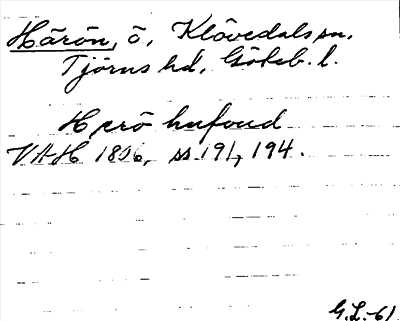 Härön, ö, Klövedals sn.
Tjörns hd. Göteb. l.
Herö hufvud
VAH 1806, ss 191, 194.
G.L.-61.